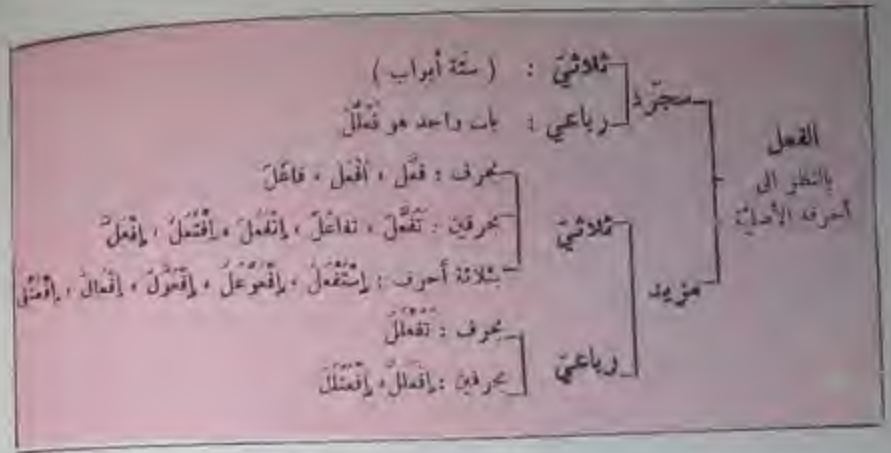 الفعل
بالنظر الى
أحرفه الأصليّة
مجرّد
ثلاثيّ : ( ستّة أبواب )
رباعي : باب واحد هو فَعْلَلَ
مزيد
ثلاثيّ
بحرف : فعَّل ، أفْعَل ، فاعَلَ
بحرفين : تَفَعَّلَ ، تفاعَلَ ، إنْفَعَلَ ، إفْتَعَلَ ، إفْعَلَّ
بثلاثة أحرف : إسْتَفْعَلَ ، إفْعَوْعَلَ ، إفْعَوَّلَ ، إفْعالَّ ،
رباعيّ
بحرف : تَفَعْلَلَ
بحرفين : إفعَلَلَّ ، إفْعَنْلَلَ